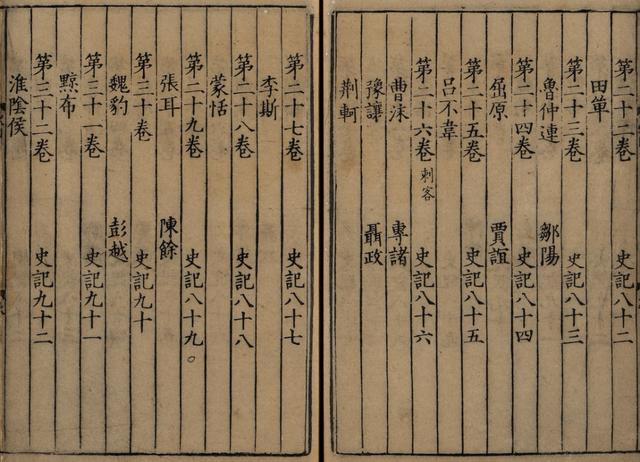 第二十二卷 史記八十二
田單
第二十三卷 史記八十三
魯仲連 鄒陽
第二十四卷 史記八十四
屈原 賈誼
第二十五卷 史記八十五
呂不韋
第二十六卷刺客 史記八十六
曹沫 專諸
豫讓 聶政
荆軻
第二十七卷 史記八十七
李斯
第二十八卷 史記八十八
蒙恬
第二十九卷 史記八十九。
張耳 陳餘
第三十卷 史記九十
魏豹 彭越
第三十一卷 史記九十一
黥布
第三十二卷 史記九十二
淮陰侯